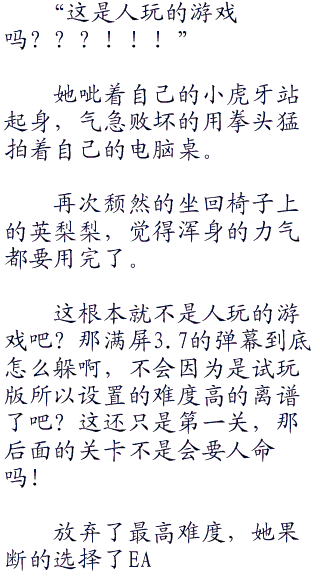 “这是人玩的游戏
吗？？？！！！”
她呲着自己的小虎牙站
起身，气急败坏的用拳头猛
拍着自己的电脑桌。
再次颓然的坐回椅子上
的英梨梨，觉得浑身的力气
都要用完了。
这根本就不是人玩的游
戏吧？那满屏3.7的弹幕到底
怎么躲啊，不会因为是试玩
版所以设置的难度高的离谱
了吧？这还只是第一关，那
后面的关卡不是会要人命
吗！
放弃了最高难度，她果
断的选择了EA